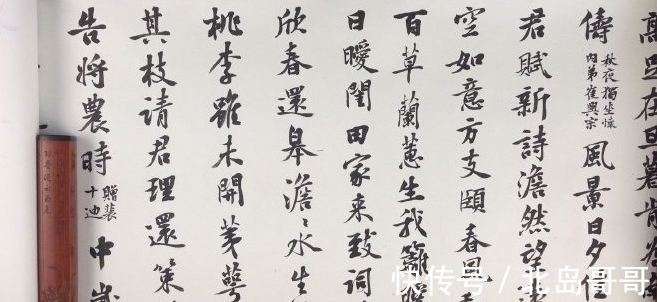 高足在旦暮肯為
儔
秋夜獨坐懷
內弟崔興宗
風景日夕
君賦新詩澹然望
空如意方支頤春風
百草蘭蕙生我籬
日曖閨田家来致詞
欣春還皋澹〻水生
桃李雖未開荑萼
其枝請君理還策
告將農時
贈裴
十迪
中歲
快传号 / 北岛哥哥